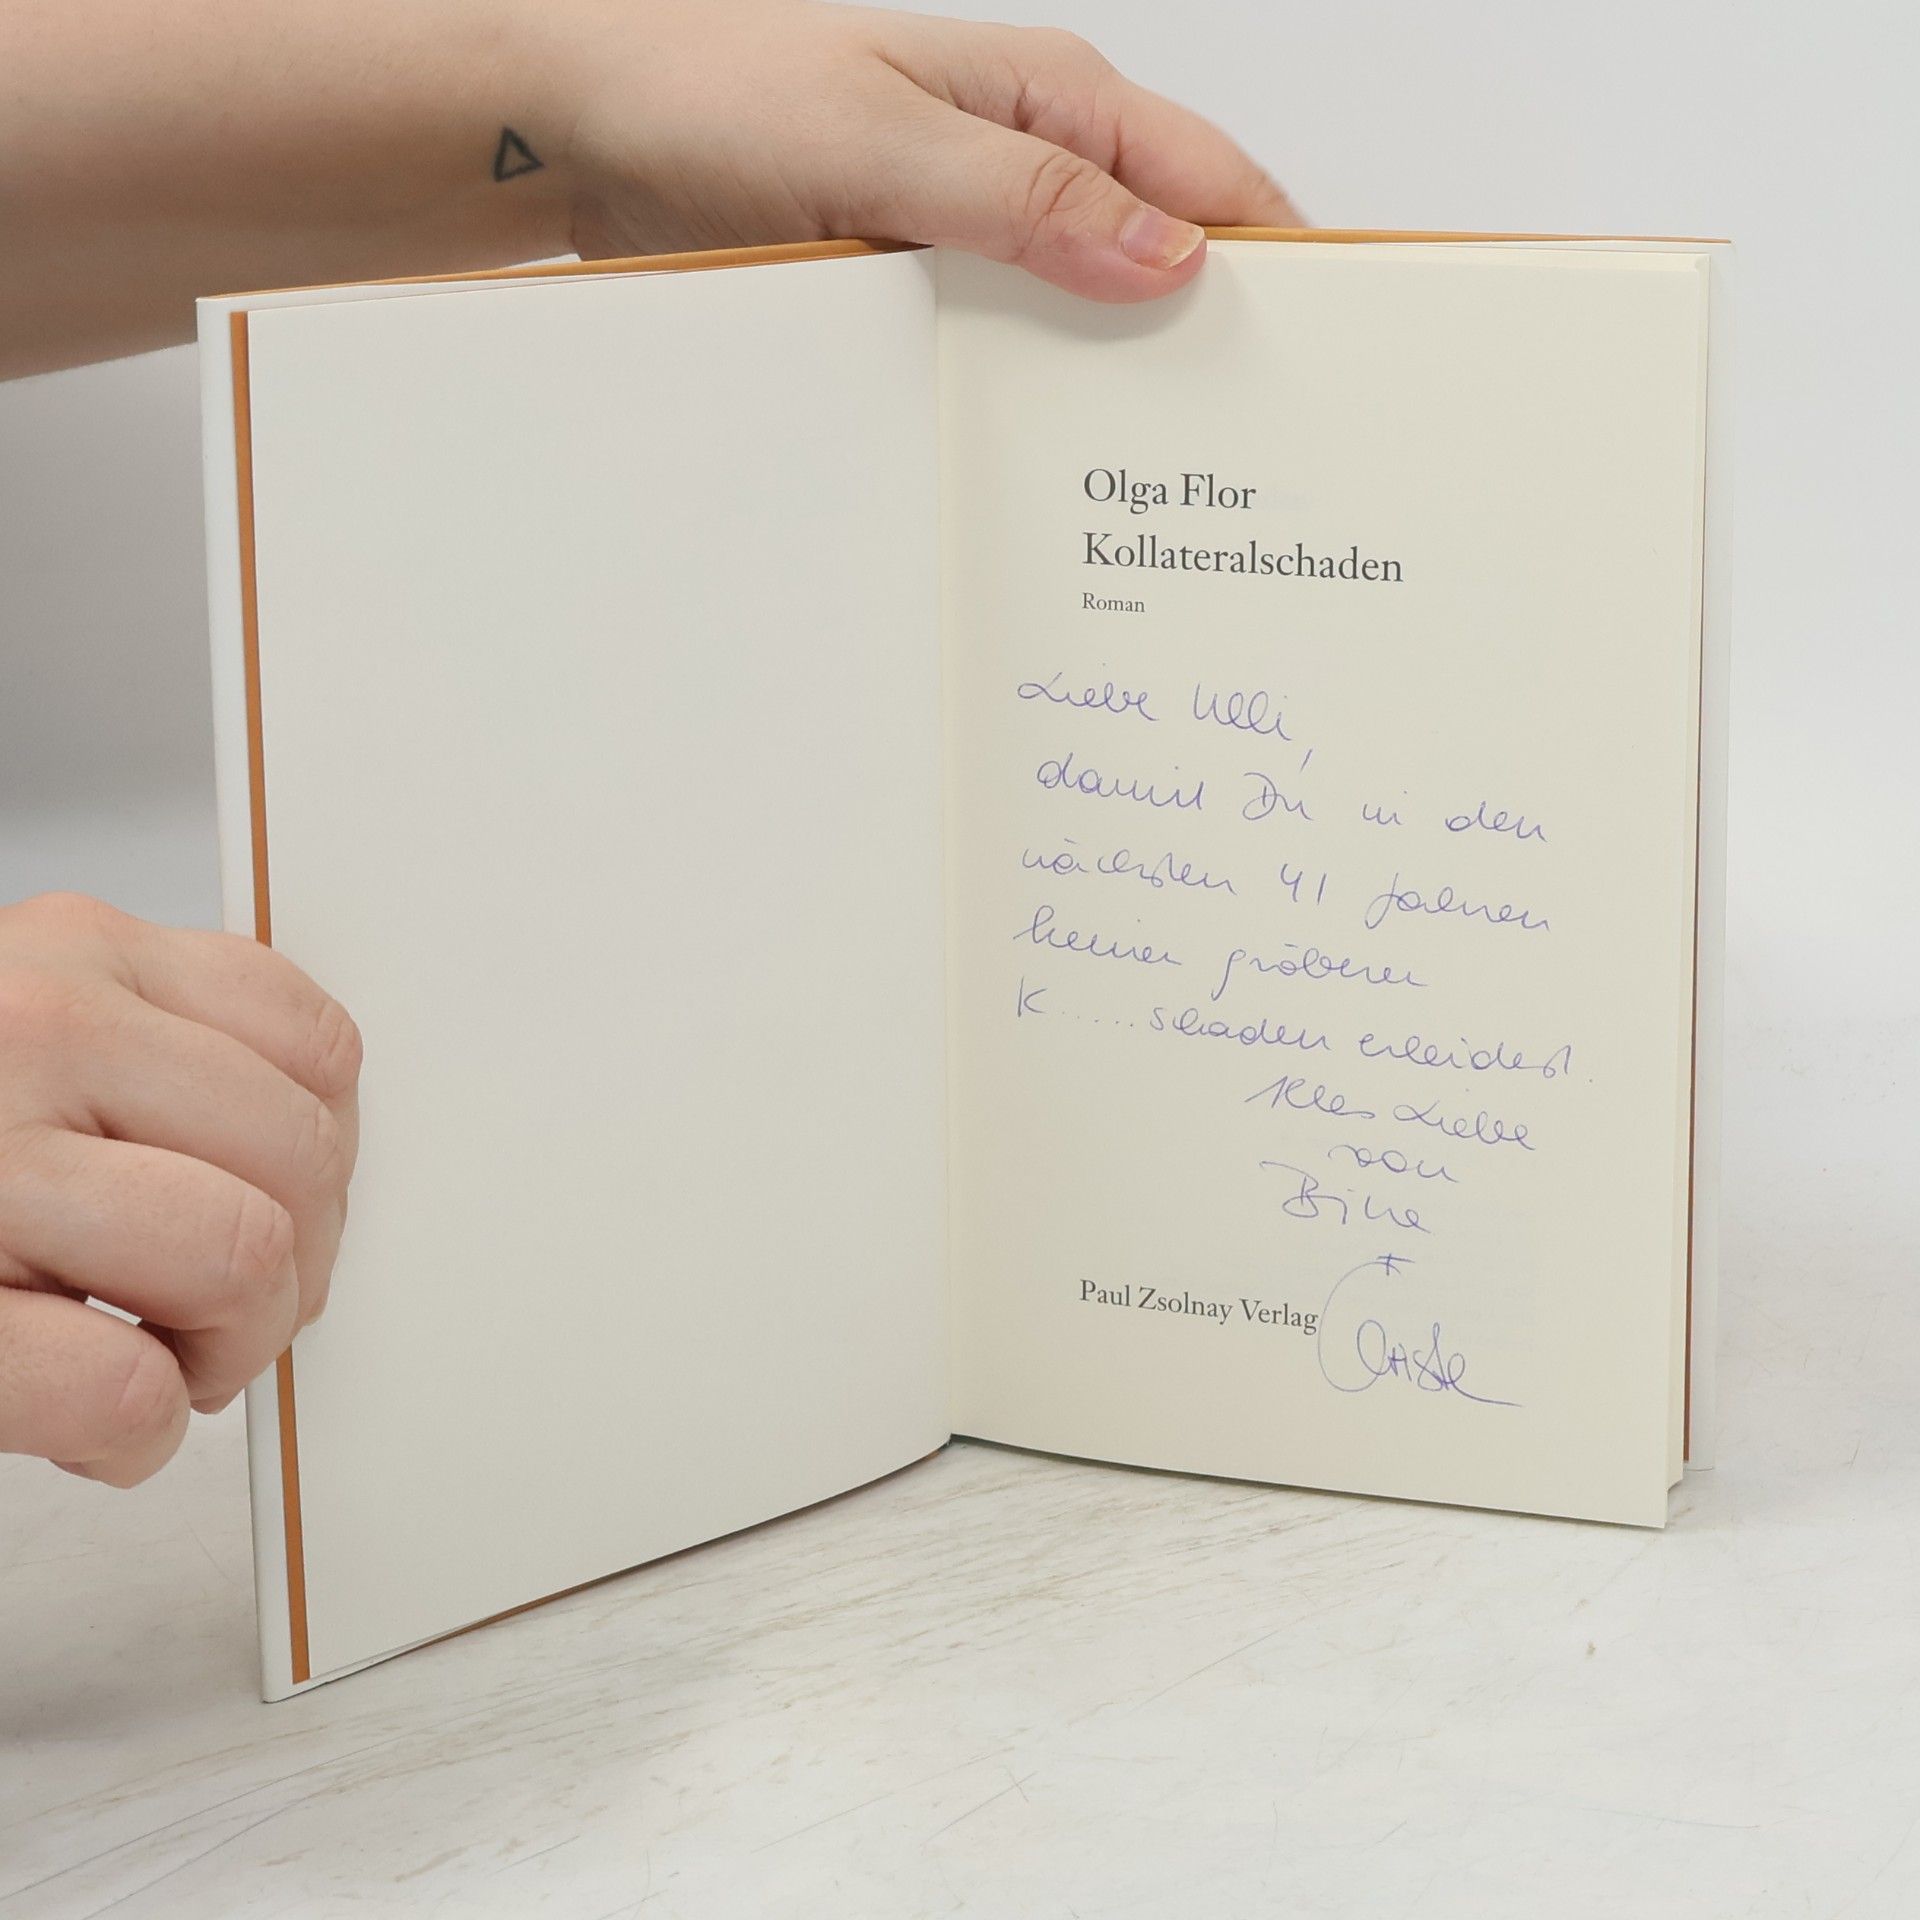 Olga Flor
Kollateralschaden
Roman
Liebe Ulli,
damit Du in den
nächsten 41 Jahren
keinen gröberen
K.....schaden erleidest.
Alles Liebe
von
Bine
+
Paul Zsolnay Verlag
Christl